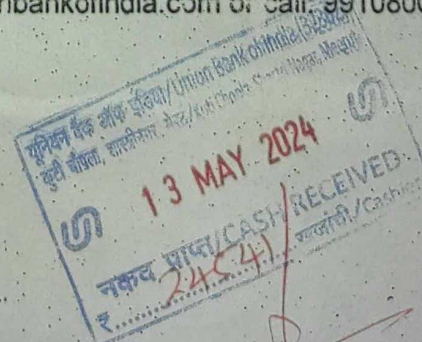 bankofindia.com or call: 9910800
यूनियन बैंक ऑफ इंडिया/Union Bank of India
कुटी चौपला, शास्त्रीनगर, मेरठ/Kuti Chopla, Nagar,
13 MAY 2024
नकद प्राप्त/CASH RECEIVED
₹ 24541/ खजांची/Cashier